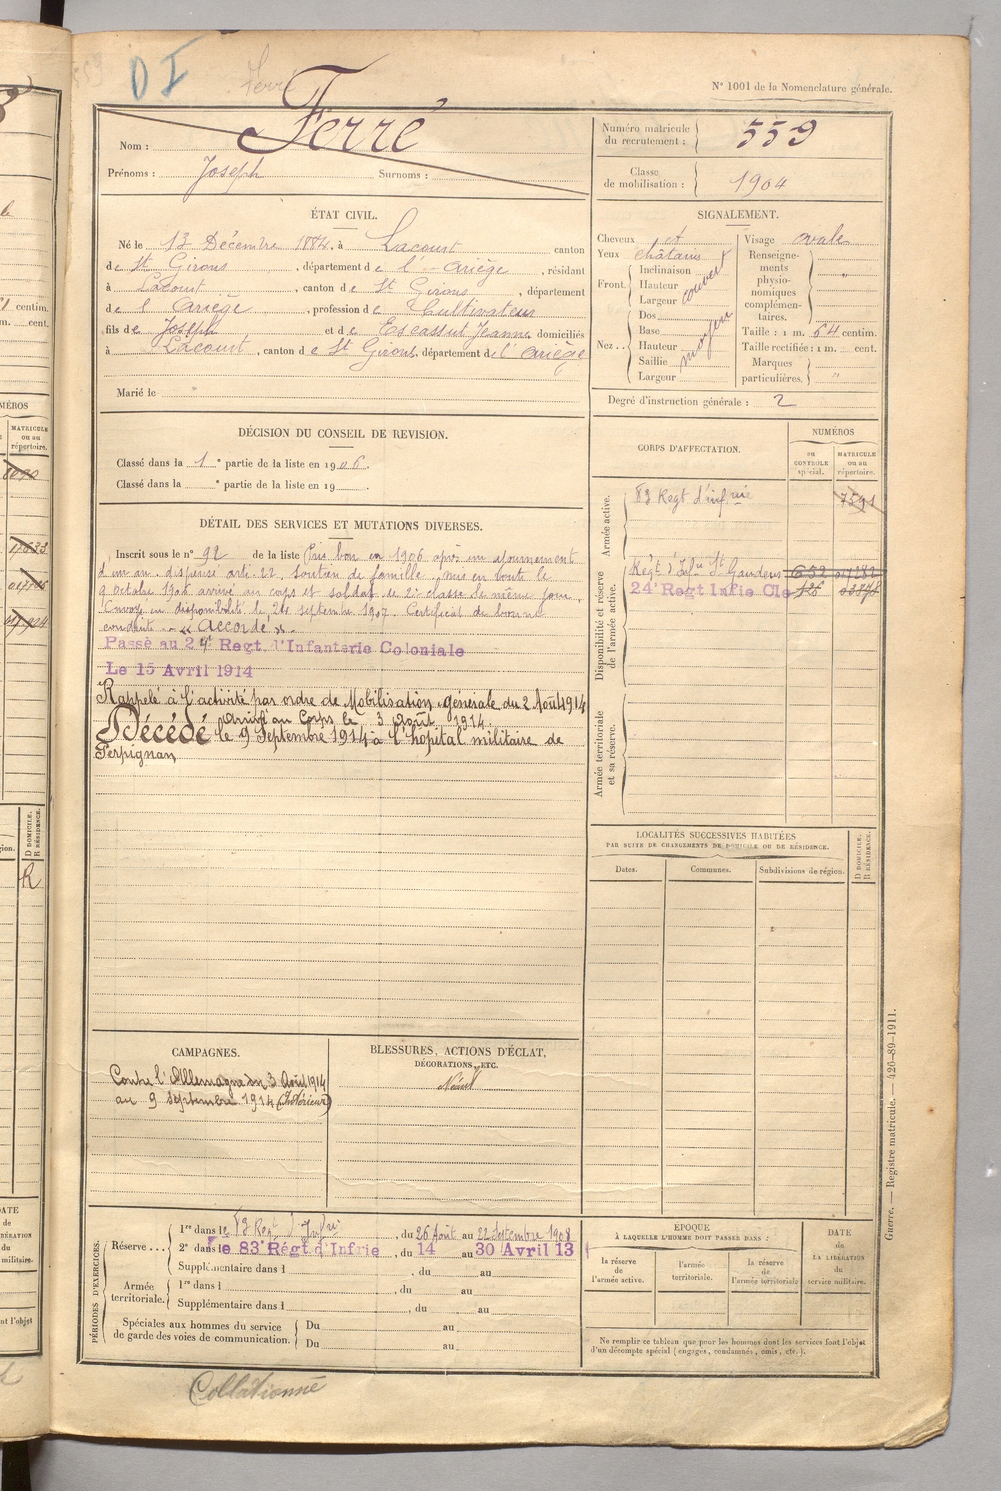 D I
Ferré
N° 1001 de la Nomenclature générale.
Nom : Ferré
Prénoms : Joseph Surnoms :
Numéro matricule du recrutement : 559
Classe de mobilisation : 1904
ÉTAT CIVIL.
Né le 13 Décembre 1884, à Lacourt canton
de St Girons, département de l'Ariège, résidant
à Lacourt, canton de St Girons, département
de l'Ariège, profession de Cultivateur
fils de Joseph et de Escassut Jeanne domiciliés
à Lacourt, canton de St Girons, département de l'Ariège
Marié le
SIGNALEMENT.
Cheveux et
Yeux châtains
Front. Inclinaison
Hauteur
Largeur
couvert
Nez.. Dos
Base
Hauteur
Saillie
Largeur
moyen
Visage ovale
Renseignements physionomiques complémentaires. "
Taille : 1 m. 64 centim.
Taille rectifiée : 1 m. cent.
Marques particulières. "
Degré d'instruction générale : 2
DÉCISION DU CONSEIL DE REVISION.
Classé dans la 1e partie de la liste en 1906.
Classé dans la e partie de la liste en 19 .
DÉTAIL DES SERVICES ET MUTATIONS DIVERSES.
Inscrit sous le n° 92 de la liste Pris bon en 1906 après un ajournement
d'un an. dispensé arti. 22, soutien de famille, mis en route le
9 octobre 1906 arrivé au corps et soldat de 2e classe le même jour.
Envoyé en disponibilité le 24 septembre 1907. Certificat de bonne
conduite « Accordé ».
Passé au 24e Regt. d'Infanterie Coloniale
Le 15 Avril 1914
Rappelé à l'activité par ordre de Mobilisation générale du 2 Août 1914
Arrivé au Corps le 3 Août 1914.
Décédé le 9 Septembre 1914 à l'hôpital militaire de
Perpignan
CORPS D'AFFECTATION.
NUMÉROS
au CONTROLE spécial.
MATRICULE ou au répertoire.
Armée active.
83 Regt d'infrie 7591
Disponibilité et réserve de l'armée active.
Regt d'Infie St Gaudens 652
24e Regt Infie Cle
Armée territoriale et sa réserve.
LOCALITÉS SUCCESSIVES HABITÉES
PAR SUITE DE CHANGEMENTS DE DOMICILE OU DE RÉSIDENCE.
D DOMICILE.
R RÉSIDENCE.
Dates.
Communes.
Subdivisions de région.
CAMPAGNES.
Contre l'Allemagne du 3 Août 1914
au 9 Septembre 1914 (Intérieur)
BLESSURES, ACTIONS D'ÉCLAT,
DÉCORATIONS, ETC.
Néant
PÉRIODES D'EXERCICES.
Réserve... 1re dans le 83 Regt d'Infrie, du 26 Août au 22 Septembre 1908
2e dans le 83e Régt d'Infrie, du 14 au 30 Avril 13
Supplémentaire dans l , du au
Armée territoriale. 1re dans l , du au
Supplémentaire dans l , du au
Spéciales aux hommes du service de garde des voies de communication. Du au
Du au
EPOQUE
À LAQUELLE L'HOMME DOIT PASSER DANS :
la réserve de l'armée active.
l'armée territoriale.
la réserve de l'armée territoriale
DATE
de
LA LIBÉRATION
du
service militaire.
Ne remplir ce tableau que pour les hommes dont les services font l'objet
d'un décompte spécial (engagés, condamnés, omis, etc.).
Guerre. — Registre matricule. — 426-89-1911.
Collationné